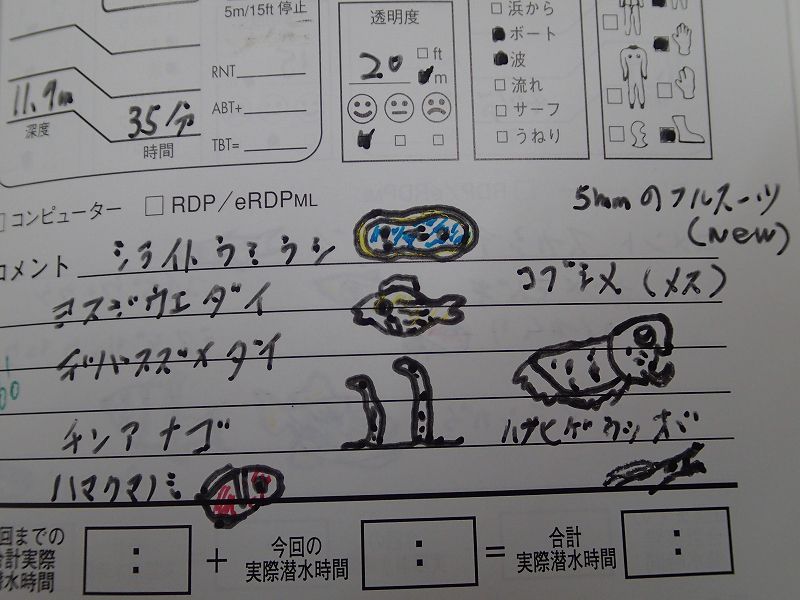 5m/15ft 停止
透明度
浜から
20 ft
m
ボート
波
RNT
流れ
11.9m
35分
ABT+
サーフ
深度
時間
TBT=
うねり
コンピューター RDP/eRDPML
5mmのフルスーツ
(New)
コメント シライトウミウシ
ヨスジフエダイ
コブシメ(メス)
デバスズメダイ
チンアナゴ
ハナヒゲウツボ
ハマクマノミ
回までの
合計実際
潜水時間
:
+
今回の
実際潜水時間
:
=
合計
実際潜水時間
: